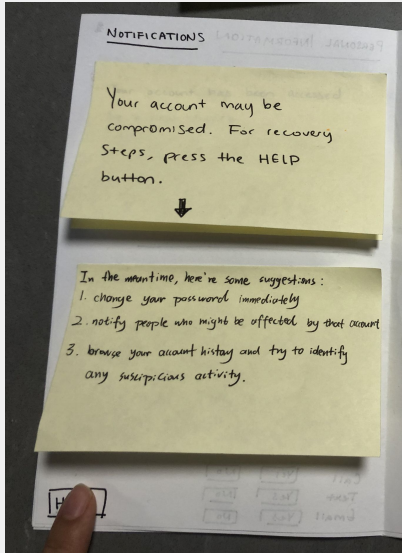 NOTIFICATIONS
Your account may be
compromised. For recovery
Steps, press the HELP
button.
In the meantime, here're some suggestions:
1. change your password immediately
2. notify people who might be affected by that account
3. browse your account history and try to identify
any suscipicious activity.